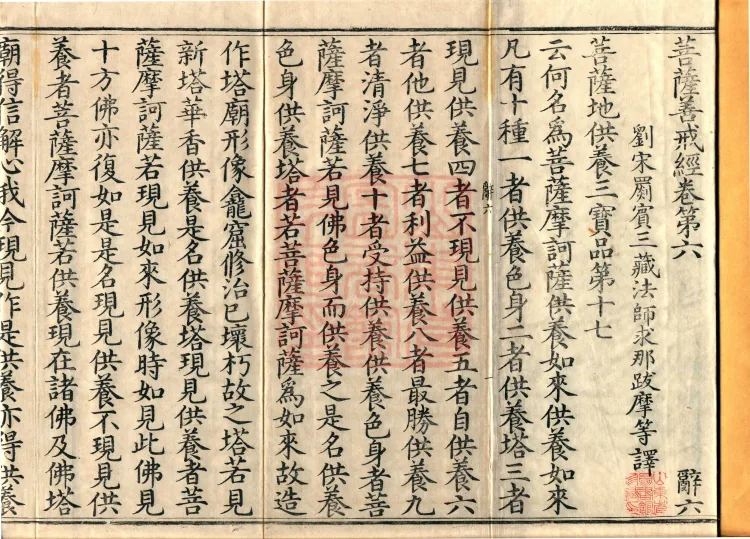 菩薩善戒經卷第六 辭六
劉宋罽賓三藏法師求那跋摩等譯
菩薩地供養三寶品第十七
云何名為菩薩摩訶薩供養如來供養如來
凡有十種一者供養色身二者供養塔三者
辭六
現見供養四者不現見供養五者自供養六
者他供養七者利益供養八者最勝供養九
者清淨供養十者受持供養供養色身者菩
薩摩訶薩若見佛色身而供養之是名供養
色身供養塔者若菩薩摩訶薩為如來故造
作塔廟形像龕窟修治已壞朽故之塔若見
新塔華香供養是名供養塔現見供養者菩
薩摩訶薩若現見如來形像時如見此佛見
十方佛亦復如是是名現見供養不現見供
養者菩薩摩訶薩若供養現在諸佛及佛塔
廟得信解心我今現見作是供養亦得供養